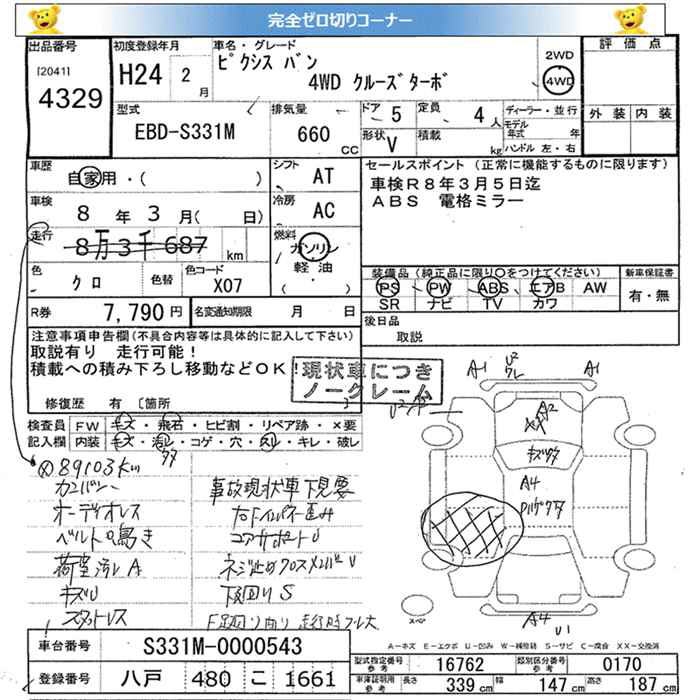 完全ゼロ切りコーナー
出品番号 初度登録年月 車名・グレード 評価点
[2041] 4329 H24 2月 ピクシス バン 2WD
4WD クルーズターボ 4WD
型式 排気量 ドア 5 定員 4人 ディーラー・並行 外装 内装
EBD-S331M 660 CC 形状 V 積載 kg モデル年式 年
ハンドル 左・右
車歴 自家用・( ) シフト AT セールスポイント (正常に機能するものに限ります)
車検 8年 3月( 日) 冷房 AC 車検R8年3月5日迄
ABS 電格ミラー
走行 8万3千687 km 燃料 ガソリン
軽油
( ・ )
色 クロ 色替 色コード X07 装備品 (純正品に限り○をつけてください) 新車保証書
PS PW ABS エアB AW 有・無
SR ナビ TV カワ
R券 7,790円 名変通知期限 月 日 後日品
取説
注意事項申告欄(不具合内容等は具体的に記入して下さい)
取説有り 走行可能!
積載への積み下ろし移動などOK!
現状車につき
ノークレーム
修復歴 有 〔箇所 〕
検査員 FW キズ・飛石・ヒビ割・リペア跡・×要
記入欄 内装 キズ・汚レ・コゲ・穴・スレ・キレ・破レ
A1 U2 A1
A2
XX
キズ
A4
A4 U1
スペア
89103km
カンバン
オーディオレス
ベルト鳴き
荷室汚レA
キズU
事故現状車下見要
コアサポートU
ネジ止めクロスメンバーU
下回りS
A=キズ E=エクボ U=凹み W=補修跡 S=サビ C=腐食 XX=交換済
車台番号 S331M-0000543
型式指定番号 参考 16762 類別区分番号 参考 0170
登録番号 八戸 480 こ 1661
車庫証明用 参考 長さ 339cm 幅 147cm 高さ 187cm